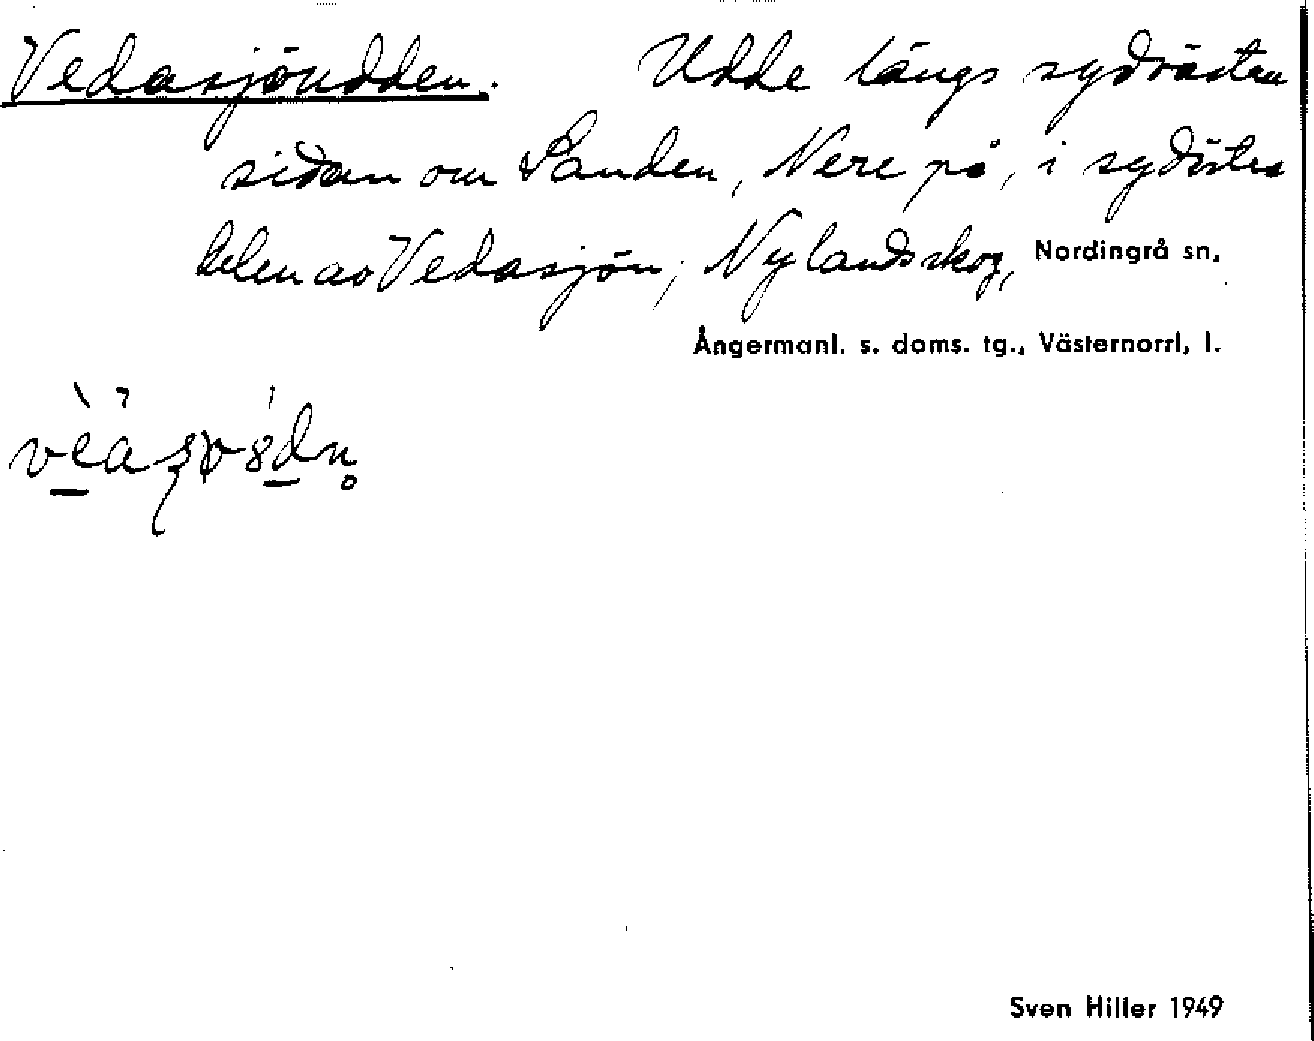 Vedasjöudden. Udde längs sydvästra
sidan om Sanden, Nere på, i sydöstra
delen av Vedasjön, Nylandsskog, Nordingrå sn,
Ångermanl. s. doms. tg., Västernorrl, l.
Sven Hiller 1949